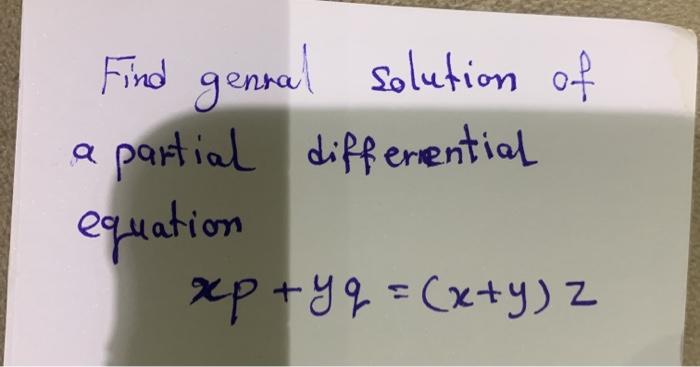 Find genral solution of
a partial differential
equation
xp + yq = (x+y) z